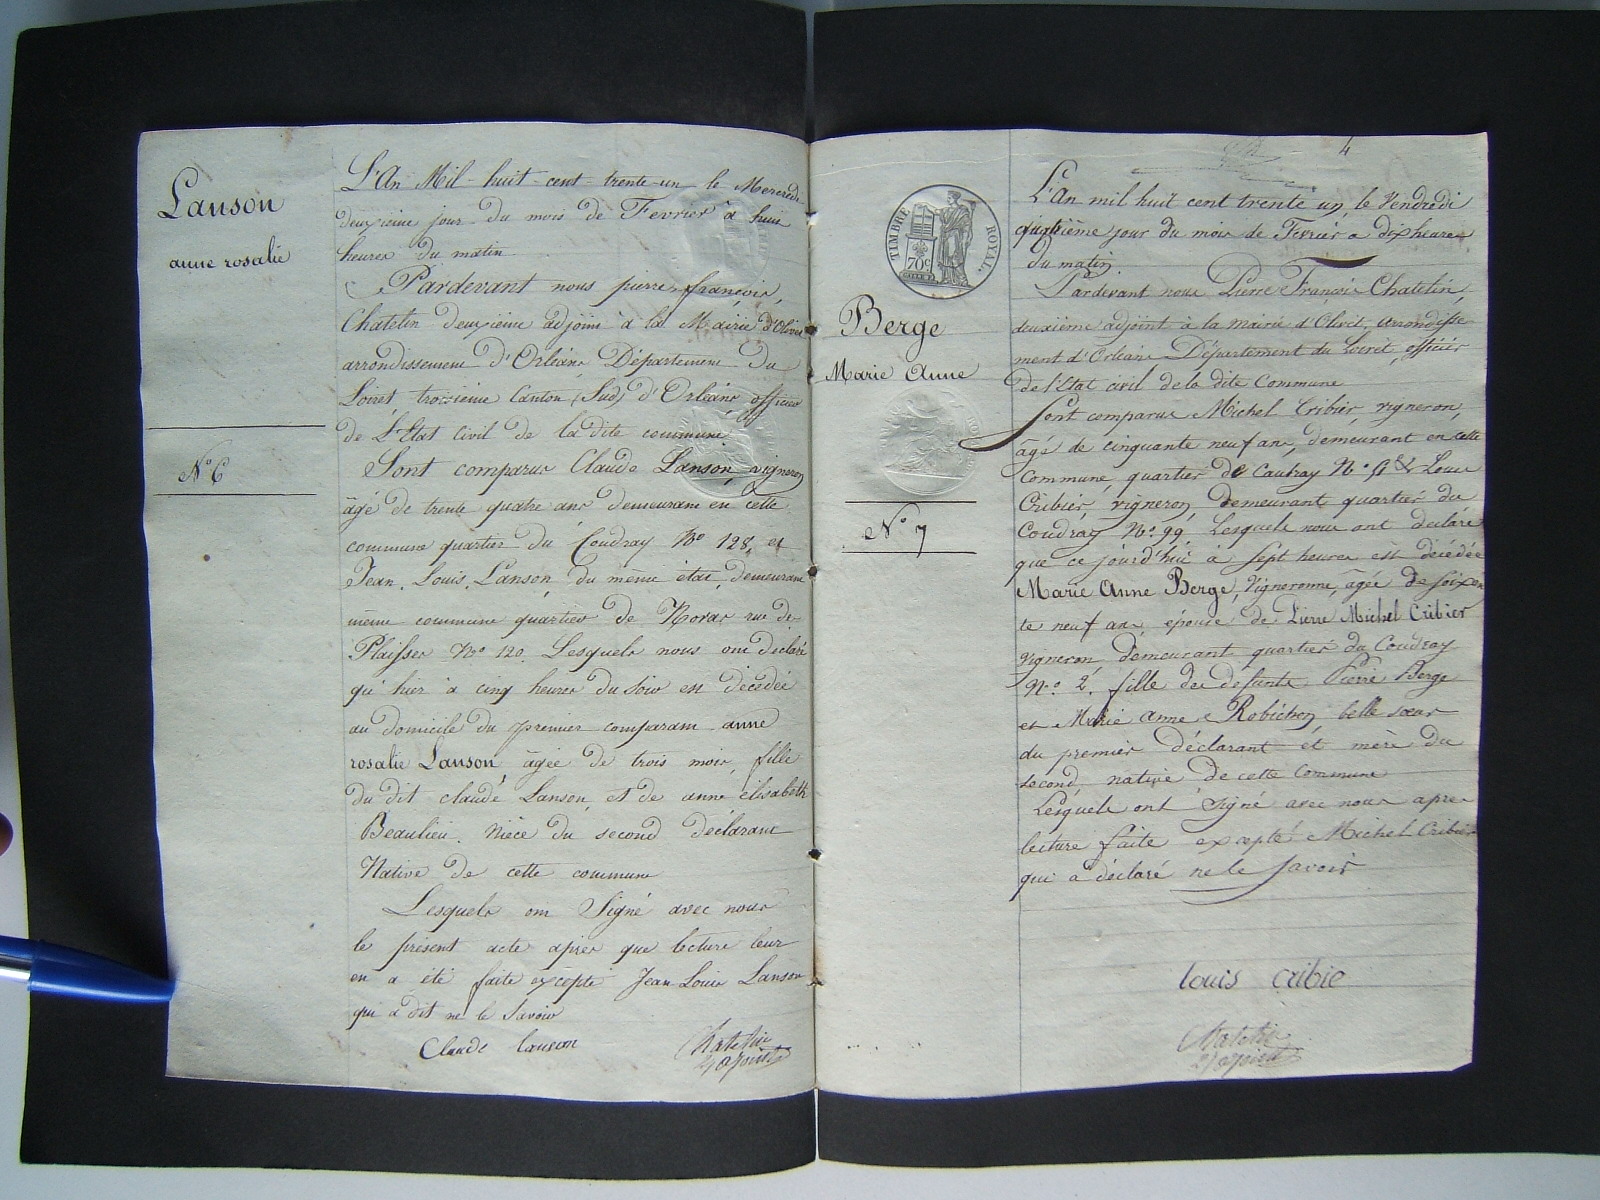 Lanson
anne rosalie
N° 6
L'An Mil huit cent trente-un le Mercredi
deuxieme jour du mois de Fevrier à huit
heures du matin
Pardevant nous pierre françois
Chatelin deuxieme adjoint à la Mairie d'Olivet
arrondissement d'Orléans Département du
Loiret troisieme Canton (Sud) d'Orléans officier
de L'Etat Civil de la dite commune
Sont comparus Claude Lanson, vigneron
âgé de trente quatre ans demeurant en cette
commune quartier du Coudray N° 128, et
Jean Louis Lanson, du même état, demeurant
même commune quartier de rue de
N° 120. Lesquels nous ont déclaré
qu'hier à cinq heures du soir est décédée
au domicile du premier comparant anne
rosalie Lanson, âgée de trois mois, fille
du dit claude Lanson, et de anne elisabeth
Beaulieu. Nièce du second déclarant
Native de cette commune
Lesquels ont Signé avec nous
le présent acte après que lecture leur
en a été faite excepté Jean Louis Lanson
qui a dit ne le Savoir
Claude lanson
Chatelin
2e adjoint
4
TIMBRE ROYAL
70c
Berge
Marie Anne
N° 7
L'An mil huit cent trente un, le Vendredi
quatrième jour du mois de Fevrier a dix heures
du matin.
Pardevant nous Pierre François Chatelin,
deuxième adjoint à la mairie d'Olivet, arrondisse
ment d'Orléans Département du Loiret, officier
de l'Etat civil de la dite Commune
Sont comparus Michel Cribier, vigneron,
âgé de cinquante neuf ans, demeurant en cette
Commune, quartier de N° & Louis
Cribier, vigneron, demeurant quartier du
Coudray N° 99. Lesquels nous ont déclaré
que ce jourd'hui à Sept heures est décédée
Marie Anne Berge, Vigneronne, âgée de soixan
te neuf ans, épouse de Pierre Michel Cribier
vigneron, demeurant quartier du Coudray
N° 2. fille des defunts Pierre Berge
et Marie Anne Robichon, belle sœur
du premier déclarant et mère du
second, native de cette Commune
Lesquels ont Signé avec nous apres
lecture faite excepté Michel Cribier
qui a déclaré ne le Savoir
louis cribie
Chatelin
2e adjoint